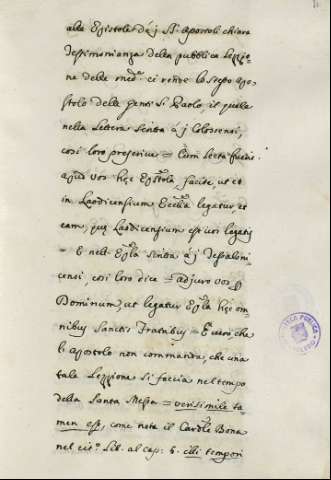 alle Epistole de i SS. Apostoli chiara
Testimonianza della pubblica Lezzio=
ne delle med.e ci rende lo stesso Apo=
stolo delle genti S. Paolo, il quale
nella Lettera scritta á i Colossensi,
così loro prescrive = Cum lecta fuerit
apud vos hęc Epistola, facite, ut et
in Laodicensium Ecclesia legatur, et
eam, quę Laodicensium est vos legatis
= E nell' Epla scritta á i Tessaloni
censi, così loro dice = adjuro vos p
Dominum, ut legatur Epla hęc om
nibus Sanctis Fratribus = È vero, che
l' Apostolo non commanda, che una
tale Lezzione si faccia nel tempo
della Santa Messa = verisimile ta
men est, come nota il Cardle Bona
nel cit.o Lib. al cap: 6. illi tempori